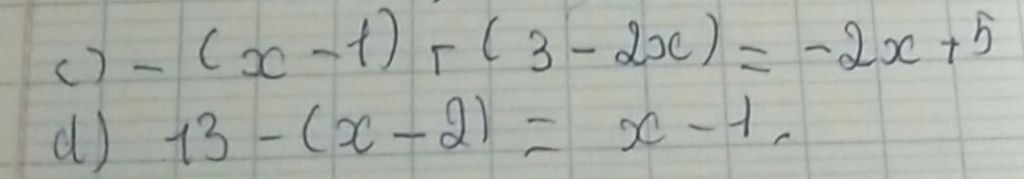 c) - (x - 1) + (3 - 2x) = -2x + 5
d) 13 - (x - 2) = x - 1.